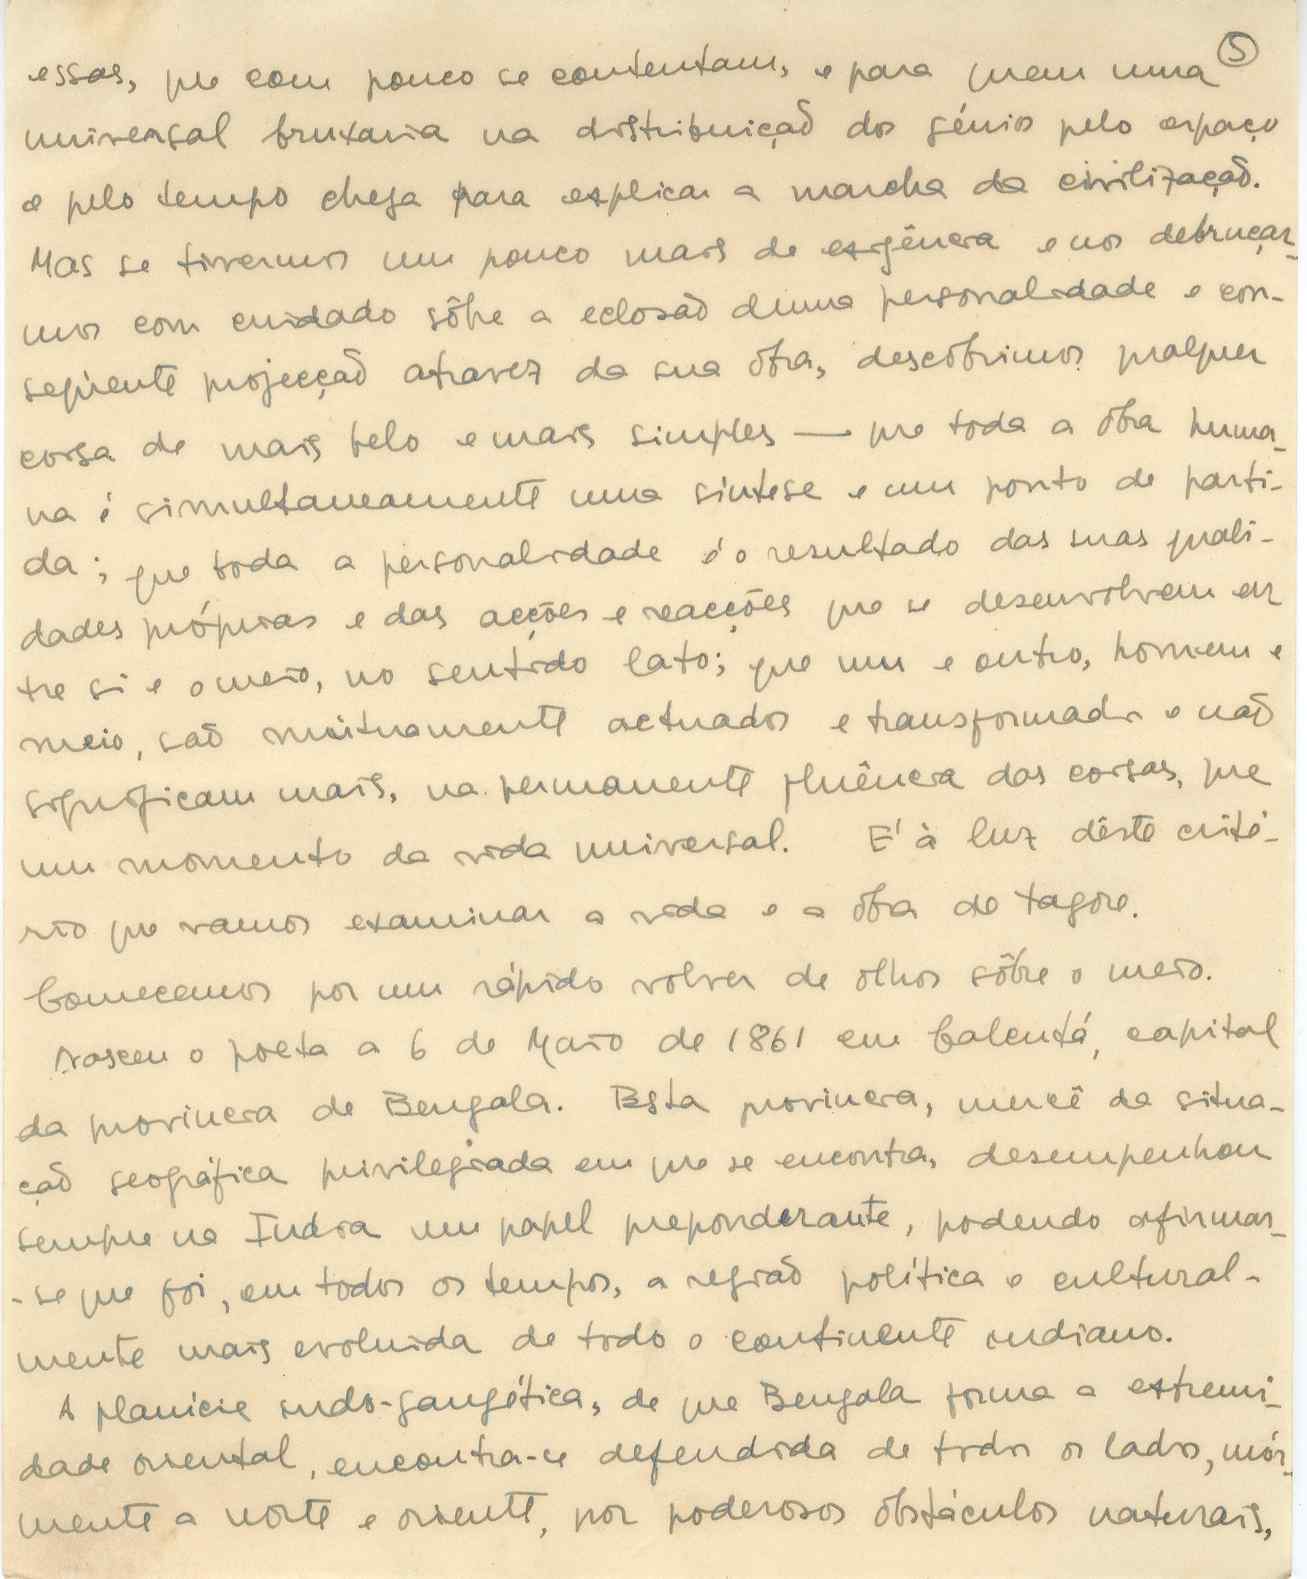 5
essas, que com pouco se contentam, e para quem uma
universal bruxaria na distribuição dos génios pelo espaço
e pelo tempo chega para explicar a marcha da civilização.
Mas se tivermos um pouco mais de exigência e nos debruçar-
mos com cuidado sôbre a eclosão duma personalidade e con-
seqüente projecção atravez da sua óbra, descobrimos qualquer
coisa de mais belo e mais simples — que toda a óbra huma-
na é simultaneamente uma síntese e um ponto de parti-
da; que toda a personalidade é o resultado das suas quali-
dades próprias e das acções e reacções que se desenvolvem en
tre si e o meio, no sentido lato; que um e outro, homem e
meio, são mùtuamente actuados e transformados e não
significam mais, na permanente fluência das coisas, que
um momento da vida universal. E' à luz dêste crité-
rio que vamos examinar a vida e a óbra de Tagore.
Comecemos por um rápido volver de olhos sôbre o meio.
Nasceu o poeta a 6 de Maio de 1861 em Calcutá, capital
da provincia de Bengala. Esta provincia, mercê da situa-
ção geográfica privilegiada em que se encontra, desempenhou
sempre na India um papel preponderante, podendo afirmar-
-se que foi, em todos os tempos, a região política e cultural-
mente mais evoluida de todo o continente indiano.
A planície indo-gangética, de que Bengala forma a extremi-
dade oriental, encontra-se defendida de todos os lados, mór-
mente a norte e oriente, por poderosos obstáculos naturais,